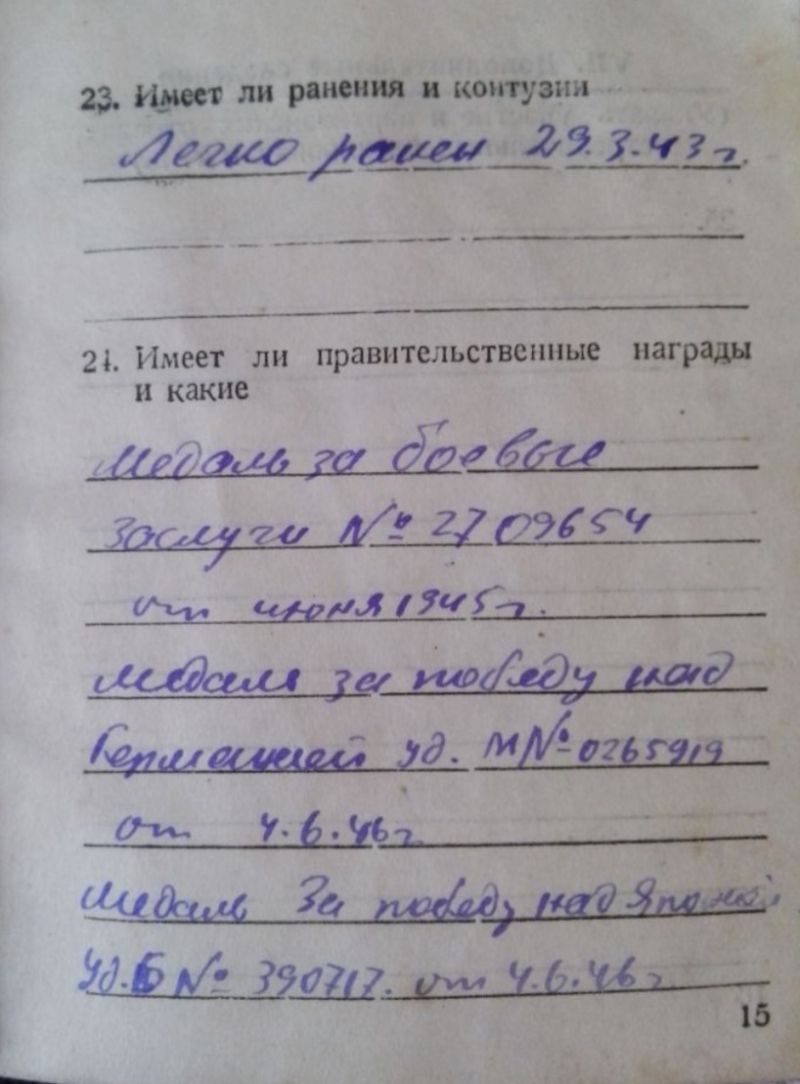 23. Имеет ли ранения и контузии
Легко ранен 29.3.43 г.
24. Имеет ли правительственные награды
и какие
Медаль за боевые
Заслуги № 2709654
от июня 1945 г.
медаль за победу над
Германией уд. М № 0265919
от 4.6.46 г
медаль За победу над Японией
Уд. Б № 390717. от 4.6.46 г
15